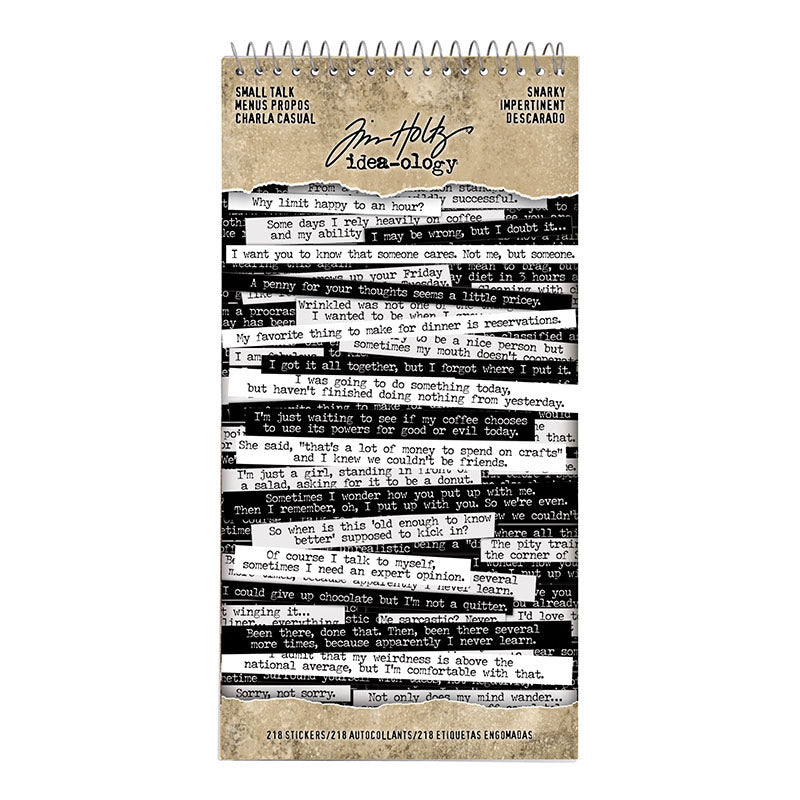 SMALL TALK
MENUS PROPOS
CHARLA CASUAL
SNARKY
IMPERTINENT
DESCARADO
Tim Holtz
idea-ology
Why limit happy to an hour?
wildly successful.
Some days I rely heavily on coffee
and my ability
I may be wrong, but I doubt it...
I want you to know that someone cares. Not me, but someone.
up your Friday
diet in 3 hours
A penny for your thoughts seems a little pricey.
Wrinkled was not one of
I wanted to be when I
My favorite thing to make for dinner is reservations.
to be a nice person but
sometimes my mouth doesn't cooperate
I am fabulous
I got it all together, but I forgot where I put it.
I was going to do something today,
but haven't finished doing nothing from yesterday.
I'm just waiting to see if my coffee chooses
to use its powers for good or evil today.
She said, "that's a lot of money to spend on crafts"
and I knew we couldn't be friends.
I'm just a girl, standing in front of
a salad, asking for it to be a donut.
Sometimes I wonder how you put up with me.
Then I remember, oh, I put up with you. So we're even.
So when is this 'old enough to know
better' supposed to kick in?
The pity train
the corner of
Of course I talk to myself,
sometimes I need an expert opinion.
several
more times, because apparently I never learn.
I could give up chocolate but I'm not a quitter.
winging it...
Me sarcastic? Never.
I'd love to
Been there, done that. Then, been there several
more times, because apparently I never learn.
I admit that my weirdness is above the
national average, but I'm comfortable with that.
Sorry, not sorry.
Not only does my mind wander...
218 STICKERS/218 AUTOCOLLANTS/218 ETIQUETAS ENGOMADAS